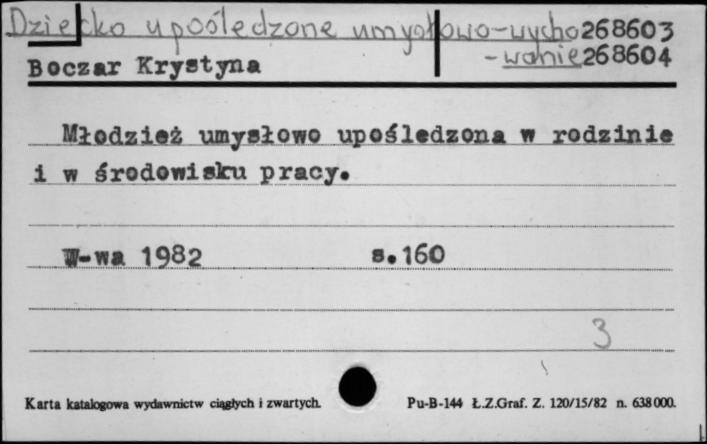 Dziecko upośledzone umysłowo-wycho 268603
-wanie 268604
Boczar Krystyna
Młodzież umysłowo upośledzona w rodzinie
i w środowisku pracy.
W-wa 1982 s.160
3
Karta katalogowa wydawnictw ciągłych i zwartych. Pu-B-144 Ł.Z.Graf. Z. 120/15/82 n. 638000.